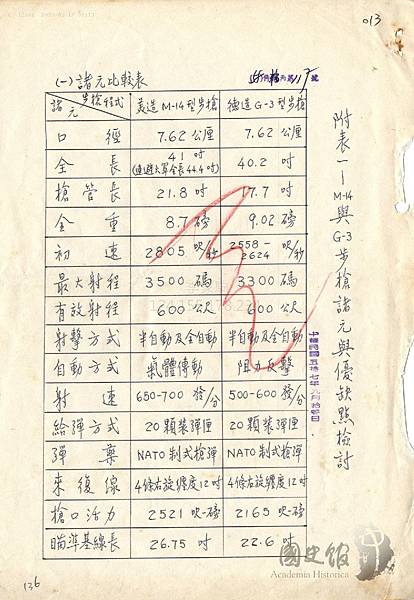 013
附表一—M-14與G-3步槍諸元與優缺點檢討
(一)諸元比較表
諸元 步槍程式 美造M-14型步槍 德造G-3型步槍
口徑 7.62公厘 7.62公厘
全長 41吋 (連避火罩全長44.4吋) 40.2吋
槍管長 21.8吋 17.7吋
全重 8.7磅 9.02磅
初速 2805呎/秒 2558-2624呎/秒
最大射程 3500碼 3300碼
有效射程 600公尺 600公尺
射擊方式 半自動及全自動 半自動及全自動
自動方式 氣體傳動 阻力反擊
射速 650-700發/分 500-600發/分
給彈方式 20顆裝彈匣 20顆裝彈匣
彈藥 NATO制式槍彈 NATO制式槍彈
來復線 4條右旋纏度12吋 4條右旋纏度12吋
槍口活力 2521呎-磅 2165呎-磅
瞄準基線長 26.75吋 22.6吋
136
國史館
Academia Historica